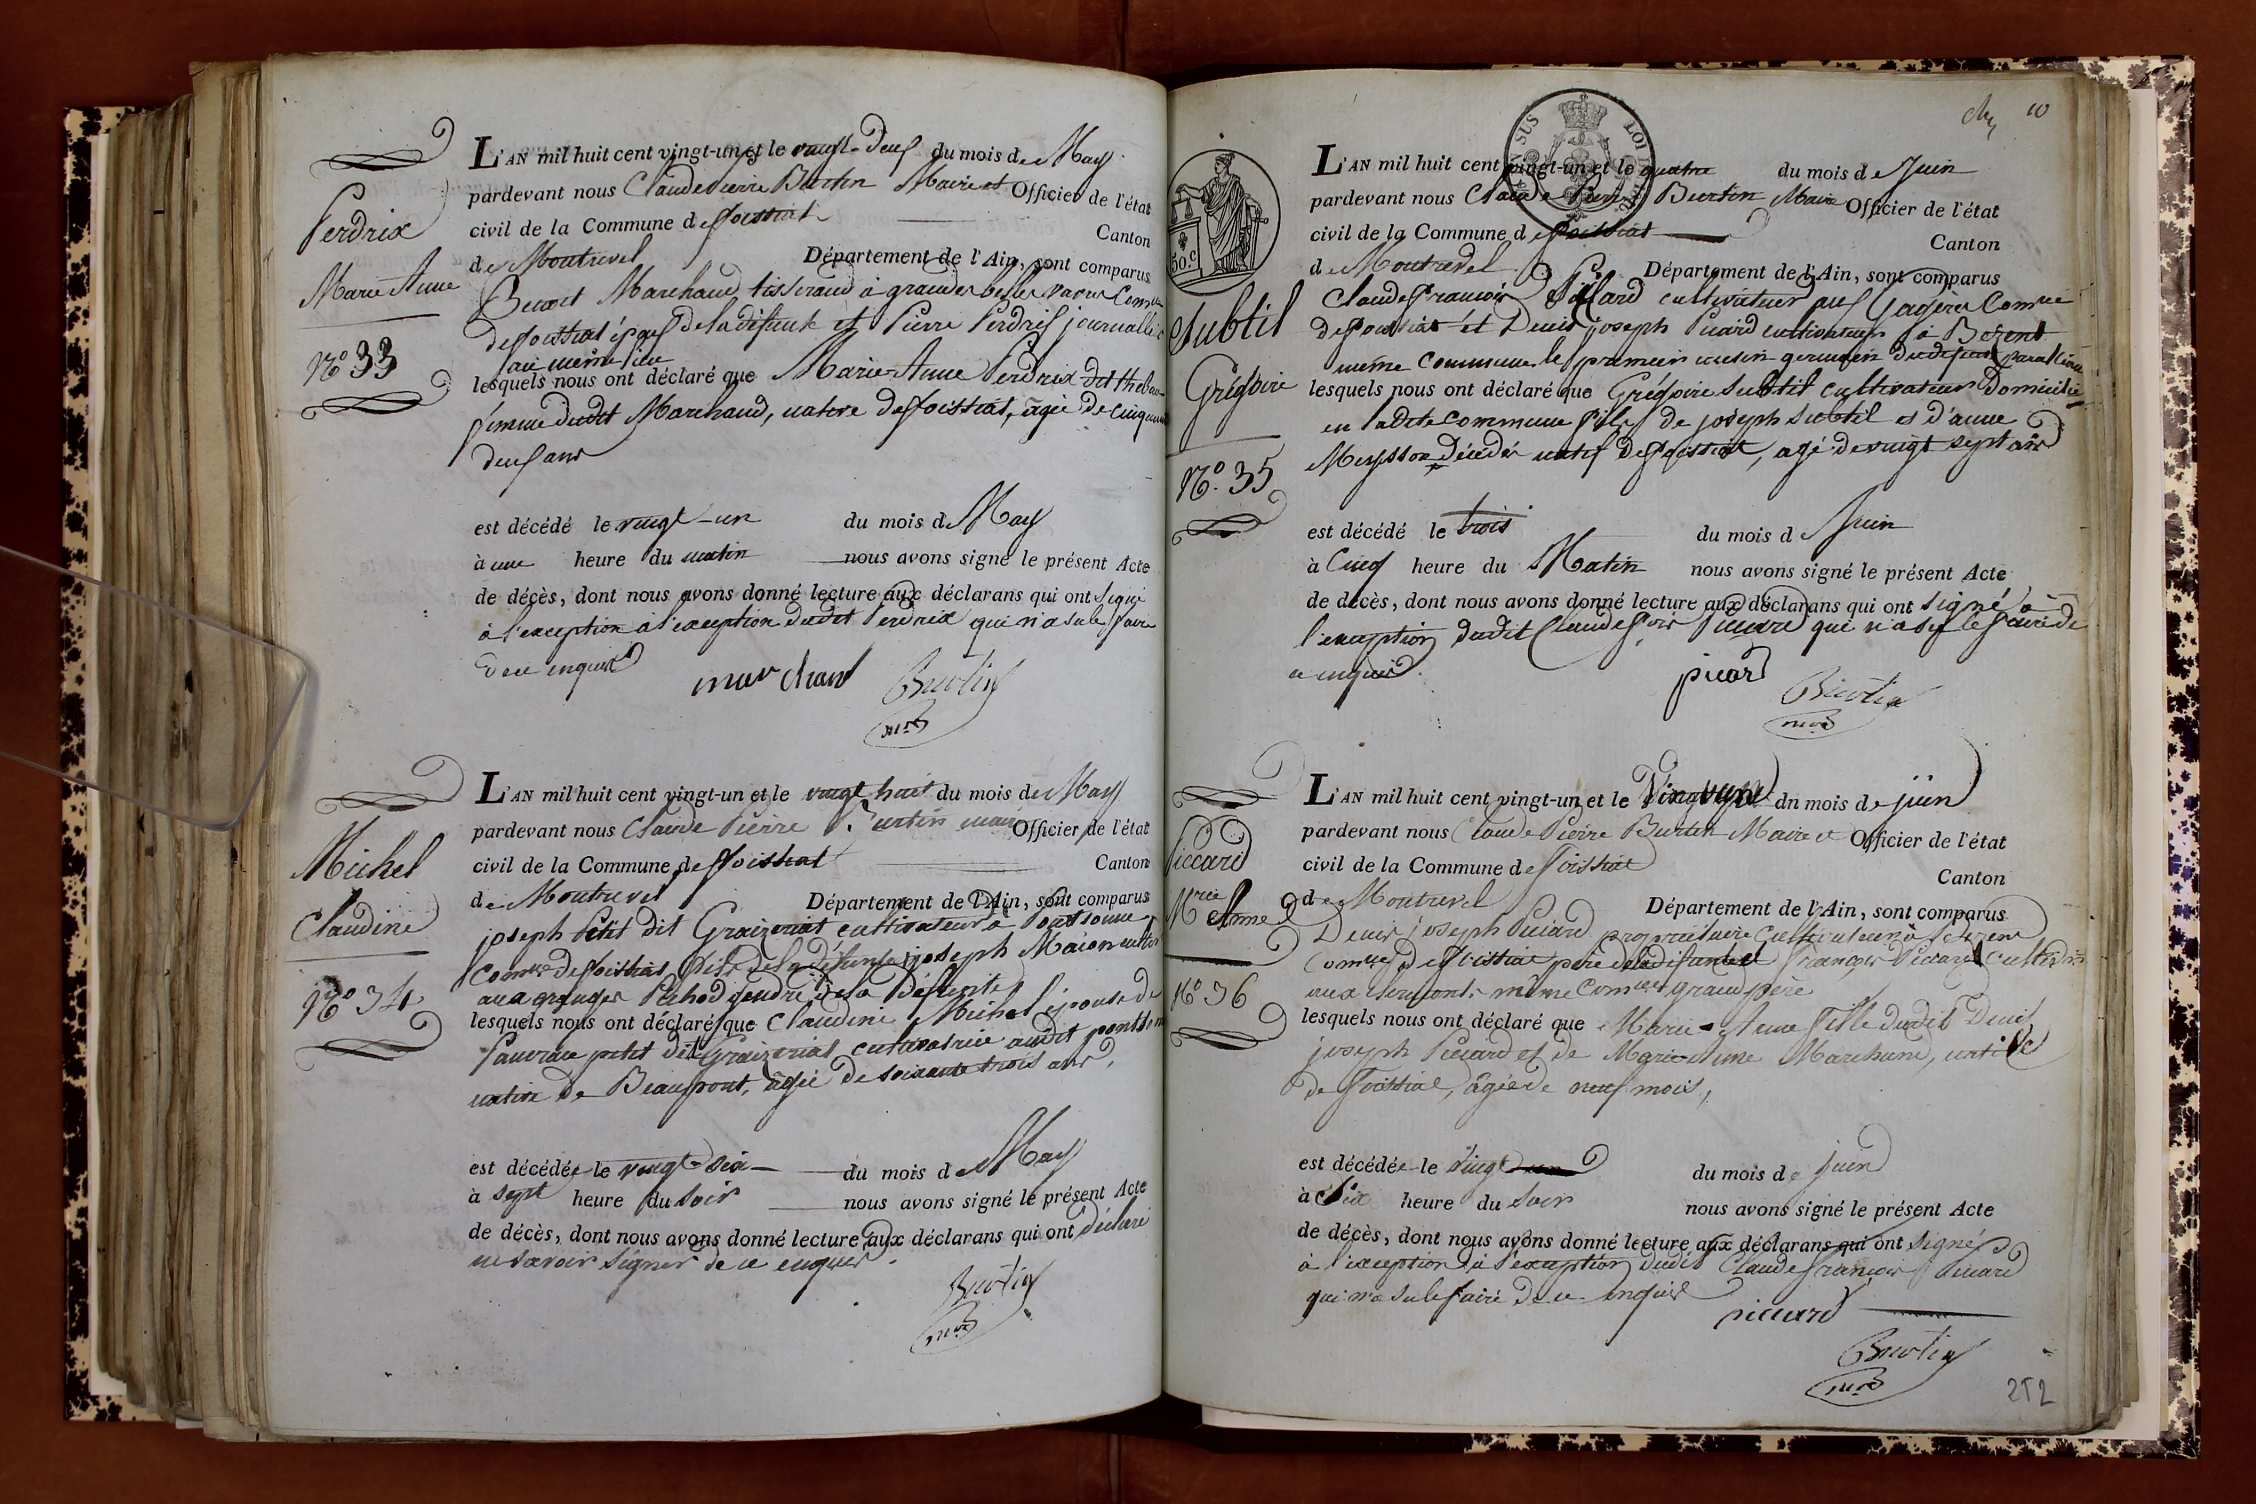 Perdrix
Marie Anne
N.º 33
L'AN mil huit cent vingt-un et le vingt-deux du mois de May
pardevant nous Claude Pierre Burtin Maire et Officier de l'état
civil de la Commune de foissiat Canton
de Montrevel Département de l'Ain, sont comparus
Benoit Marchand tisserand à grandes belles vavres Comune
de foissiat époux de la défunte et Pierre Perdrix journallier
au même lieu
lesquels nous ont déclaré que Marie-Anne Perdrix dit
femme dudit Marchand, native de foissiat, agée de cinquante
deux ans
est décédé le vingt-un du mois de May
à une heure du matin nous avons signé le présent Acte
de décès, dont nous avons donné lecture aux déclarans qui ont signé
à l'exception à l'exception dudit Perdrix qui n'a su le faire
de ce enquis
marchand Burtin
mre
Michel
Claudine
N.º 34
L'AN mil huit cent vingt-un et le vingt huit du mois de May
pardevant nous Claude Pierre Burtin maire Officier de l'état
civil de la Commune de foissiat Canton
de Montrevel Département de l'Ain, sont comparus
joseph Petit dit Graizeriat cultivateur à
Comne de foissiat fils de la défunte joseph
aux granges gendre de la Défunte
lesquels nous ont déclaré que Claudine Michel épouse de
petit dit Graizeriat cultivatrice audit
native de Beaupont, agée de soixante trois ans,
est décédée le vingt-six du mois de May
à sept heure du soir nous avons signé le présent Acte
de décès, dont nous avons donné lecture aux déclarans qui ont déclaré
ne savoir signer de ce enquis.
Burtin
mre
10
SUS LOI
50.c
Subtil
Grégoire
N.º 35
L'AN mil huit cent vingt-un et le quatre du mois de Juin
pardevant nous Claude Pierre Burtin Maire Officier de l'état
civil de la Commune de foissiat Canton
de Montrevel Département de l'Ain, sont comparus
Claude françois Picard cultivateur aux Comne
de foissiat et Denis joseph Picard cultivateur à Bezent
même commune le premier cousin germain du défunt
lesquels nous ont déclaré que Grégoire Subtil cultivateur domicilié
en ladite commune fils de joseph Subtil et d'anne
décédés natif de foissiat, agé de vingt sept ans
est décédé le trois du mois de Juin
à Cinq heure du Matin nous avons signé le présent Acte
de décès, dont nous avons donné lecture aux déclarans qui ont signé à
l'exception dudit Claude fcois Piccard qui n'a su le faire de
ce enquis.
picard
Burtin
mre
Piccard
Mrie Anne
N.º 36
L'AN mil huit cent vingt-un et le Vingt un du mois de juin
pardevant nous Claude Pierre Burtin Maire et Officier de l'état
civil de la Commune de foissiat Canton
de Montrevel Département de l'Ain, sont comparus
Denis joseph Piccard propriétaire cultivateur à
Comne de foissiat père de la défunte et françois Piccard
aux même Comne grand père
lesquels nous ont déclaré que Marie-Anne fille dudit Denis
joseph Piccard et de Marie Anne Marchand, native
de foissiat, agée de neuf mois,
est décédée le vingt un du mois de juin
à Six heure du soir nous avons signé le présent Acte
de décès, dont nous avons donné lecture aux déclarans qui ont signé
à l'exception à l'exception dudit Claude françois Picard
qui n'a su le faire de ce enquis
piccard
Burtin
mre
252